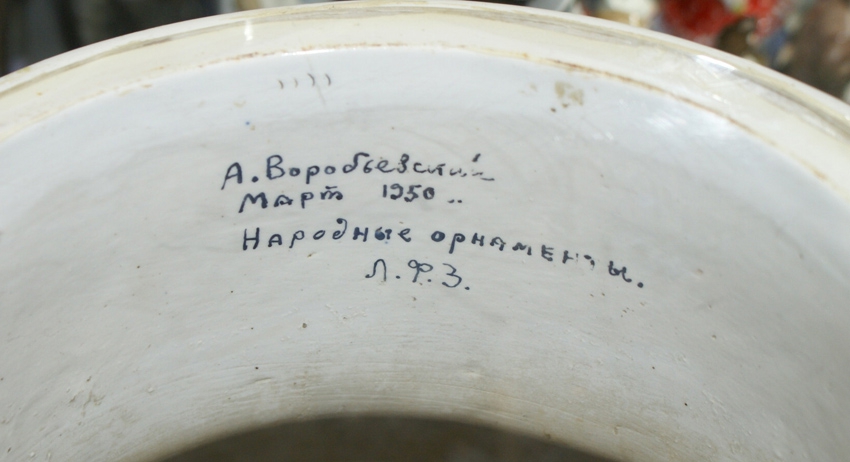 А. Воробьевский
Март 1950
Народные орнаменты.
Л.Ф.З.